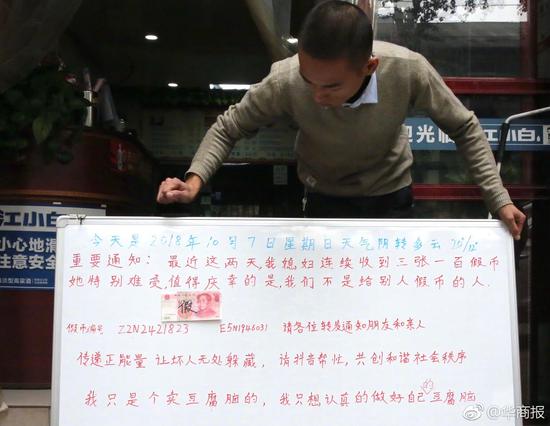 迎光临
江小白
江小白
小心地滑
注意安全
今天是2018年10月7日星期日天气阴转多云
重要通知：最近这两天,我媳妇连续收到三张一百假币
她特别难受,值得庆幸的是,我们不是给别人假币的人.
假
假币编号 Z2N2421823 E5N1946031 请各位转发通知朋友和亲人
传递正能量 让坏人无处躲藏, 请抖音帮忙,共创和谐社会秩序
我只是个卖豆腐脑的,我只想认真的做好自己的豆腐脑
@华商报